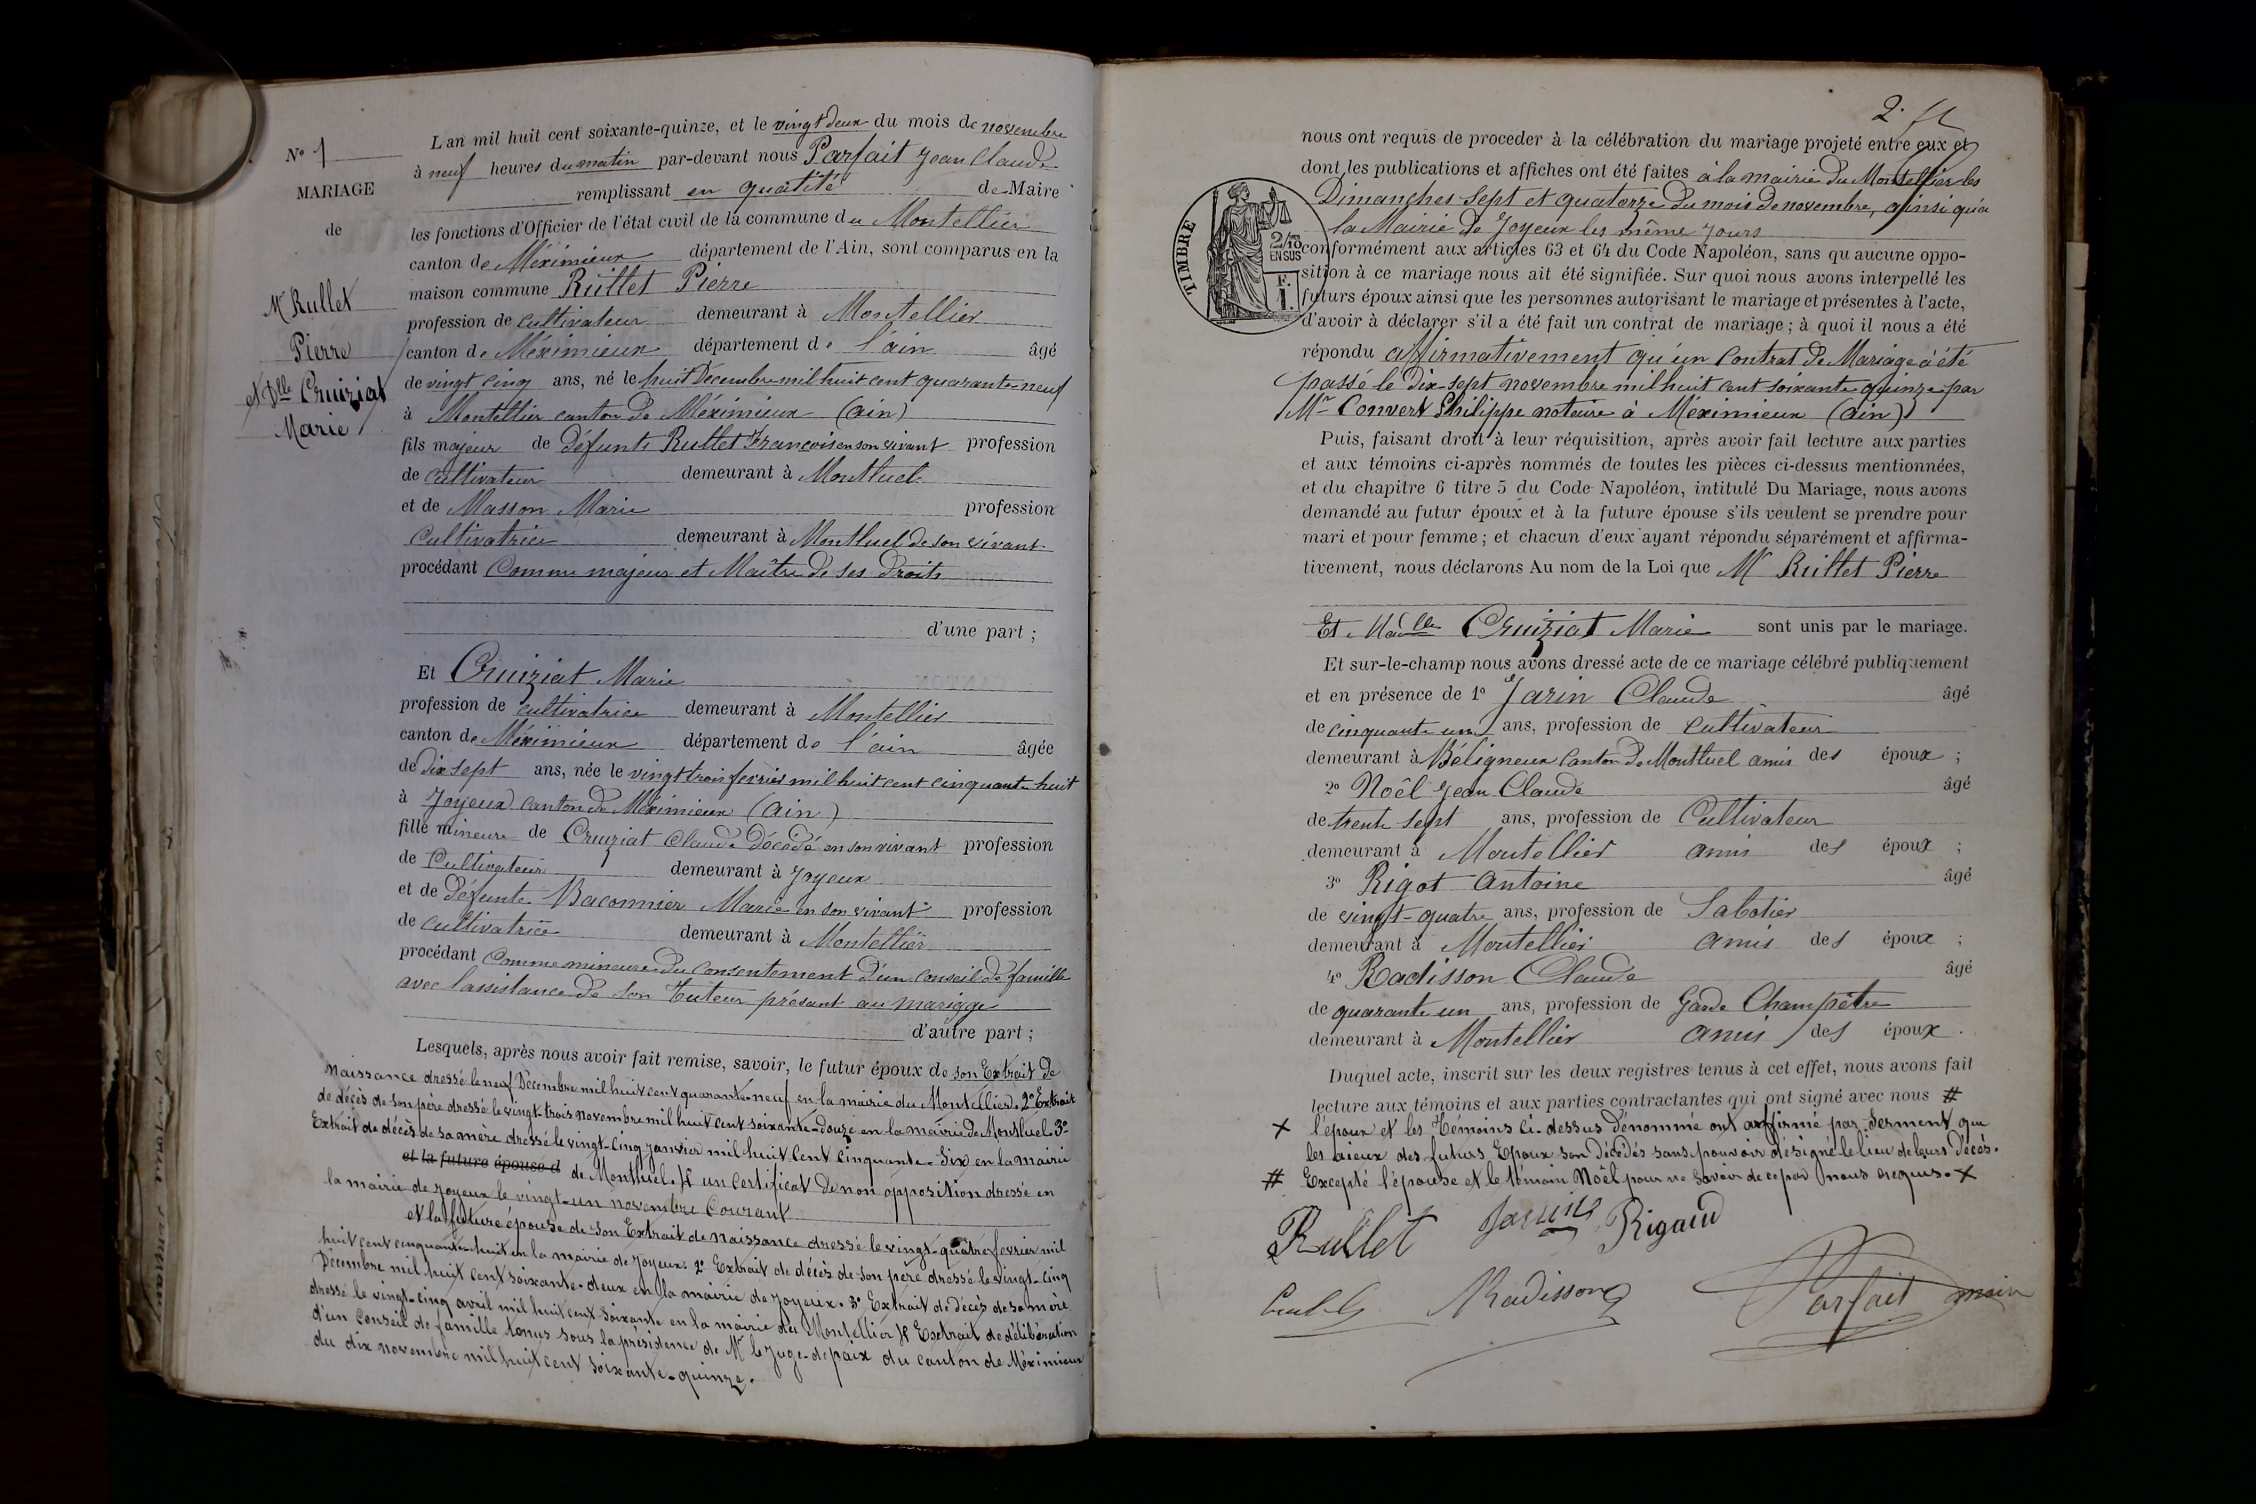 Nº 1
MARIAGE
de
Mr Rullet
Pierre
et Dlle Cruiziat
Marie
L an mil huit cent soixante-quinze, et le vingt deux du mois de novembre
à neuf heures du matin par-devant nous Parfait Jean Claude
remplissant en quatité de Maire
les fonctions d'Officier de l'état civil de la commune du Montellier
canton de Méximieux département de l'Ain, sont comparus en la
maison commune Rullet Pierre
profession de cultivateur demeurant à Montellier
canton de Méximieux département de l'ain âgé
de vingt cinq ans, né le huit Décembre mil huit cent quarante-neuf
à Montellier canton de Méximieux (ain)
fils majeur de défunts Rullet François en son vivant profession
de cultivateur demeurant à Montluel
et de Masson Marie profession
Cultivatrice demeurant à Montluel de son vivant
procédant Comme majeur et Maître de ses Droits
d'une part ;
Et Cruiziat Marie
profession de cultivatrice demeurant à Montellier
canton de Méximieux département de l'ain âgée
de dix sept ans, née le vingt trois fevrier mil huit cent cinquante huit
à Joyeux canton de Méximieux (ain)
fille mineure de Cruiziat Claude Décédé en son vivant profession
de Cultivateur demeurant à Joyeux
et de défunte Baconnier Marie en son vivant profession
de cultivatrice demeurant à Montellier
procédant Comme mineure du Consentement d'un Conseil de famille
avec l'assistance de son Tuteur présent au mariage
d'autre part ;
Lesquels, après nous avoir fait remise, savoir, le futur époux de son Extrait de
Naissance dressé le neuf Décembre mil huit cent quarante-neuf en la mairie du Montellier. 2º Extrait
de décès de son père dressé le vingt-trois novembre mil huit cent soixante-douze en la mairie de Montluel 3º
Extrait de décès de sa mère dressé le vingt-cinq janvier mil huit Cent Cinquante-Six en la mairie
et la future épouse d de Montluel. 4º un Certificat de non opposition dressé en
la mairie de Joyeux le vingt-un novembre Courant
et la future épouse de son Extrait de naissance dressé le vingt-quatre fevrier mil
huit cent cinquante-huit en la mairie de Joyeux. 2º Extrait de décès de son père dressé le vingt-cinq
Décembre mil huit cent soixante-deux en la mairie de Joyeux. 3º Extrait de décès de sa mère
dressé le vingt-cinq avril mil huit cent soixante en la mairie du Montellier 4º Extrait de délibération
d'un Conseil de famille tenus sous la présidence de Mr le Juge-de paix du canton de Méximieux
du dix novembre mil huit cent soixante-quinze.
2.
nous ont requis de proceder à la célébration du mariage projeté entre eux et
dont les publications et affiches ont été faites à la mairie du Montellier les
Dimanches sept et quatorze du mois de novembre, ainsi qu'a
la Mairie de Joyeux les même jours
TIMBRE
2/10
EN SUS
F.
1.
conformément aux articles 63 et 64 du Code Napoléon, sans qu aucune oppo-
sition à ce mariage nous ait été signifiée. Sur quoi nous avons interpellé les
futurs époux ainsi que les personnes autorisant le mariage et présentes à l'acte,
d'avoir à déclarer s'il a été fait un contrat de mariage ; à quoi il nous a été
répondu affirmativement qu'un Contrat de Mariage a été
passé le dix-sept novembre mil huit cent soixante quinze par
Mr Convert Philippe notaire à Méximieux (ain)
Puis, faisant droit à leur réquisition, après avoir fait lecture aux parties
et aux témoins ci-après nommés de toutes les pièces ci-dessus mentionnées,
et du chapitre 6 titre 5 du Code Napoléon, intitulé Du Mariage, nous avons
demandé au futur époux et à la future épouse s'ils veulent se prendre pour
mari et pour femme ; et chacun d'eux ayant répondu séparément et affirma-
tivement, nous déclarons Au nom de la Loi que Mr Rullet Pierre
Et Melle Cruiziat Marie sont unis par le mariage.
Et sur-le-champ nous avons dressé acte de ce mariage célébré publiquement
et en présence de 1º Jarin Claude âgé
de cinquante un ans, profession de Cultivateur
demeurant à Béligneux Canton de Montluel amis des époux ;
2º Noêl Jean Claude âgé
de trente sept ans, profession de Cultivateur
demeurant à Montellier amis des époux ;
3º Rigot Antoine âgé
de vingt-quatre ans, profession de Sabotier
demeurant à Montellier amis des époux ;
4º Radisson Claude âgé
de quarante un ans, profession de Garde Champêtre
demeurant à Montellier amis des époux.
Duquel acte, inscrit sur les deux registres tenus à cet effet, nous avons fait
lecture aux témoins et aux parties contractantes qui ont signé avec nous #
X l'époux et les Témoins Ci-dessus dénommé ont affirmé par Serment que
les aïeux des futurs Epoux son décédés sans pouvoir désigné le lieu de leurs Décès.
# Excepté l'épouse et le témoin Noêl pour ne savoir de ce par nous enquis. X
Rullet Jarin Rigaud
Radisson Parfait maire